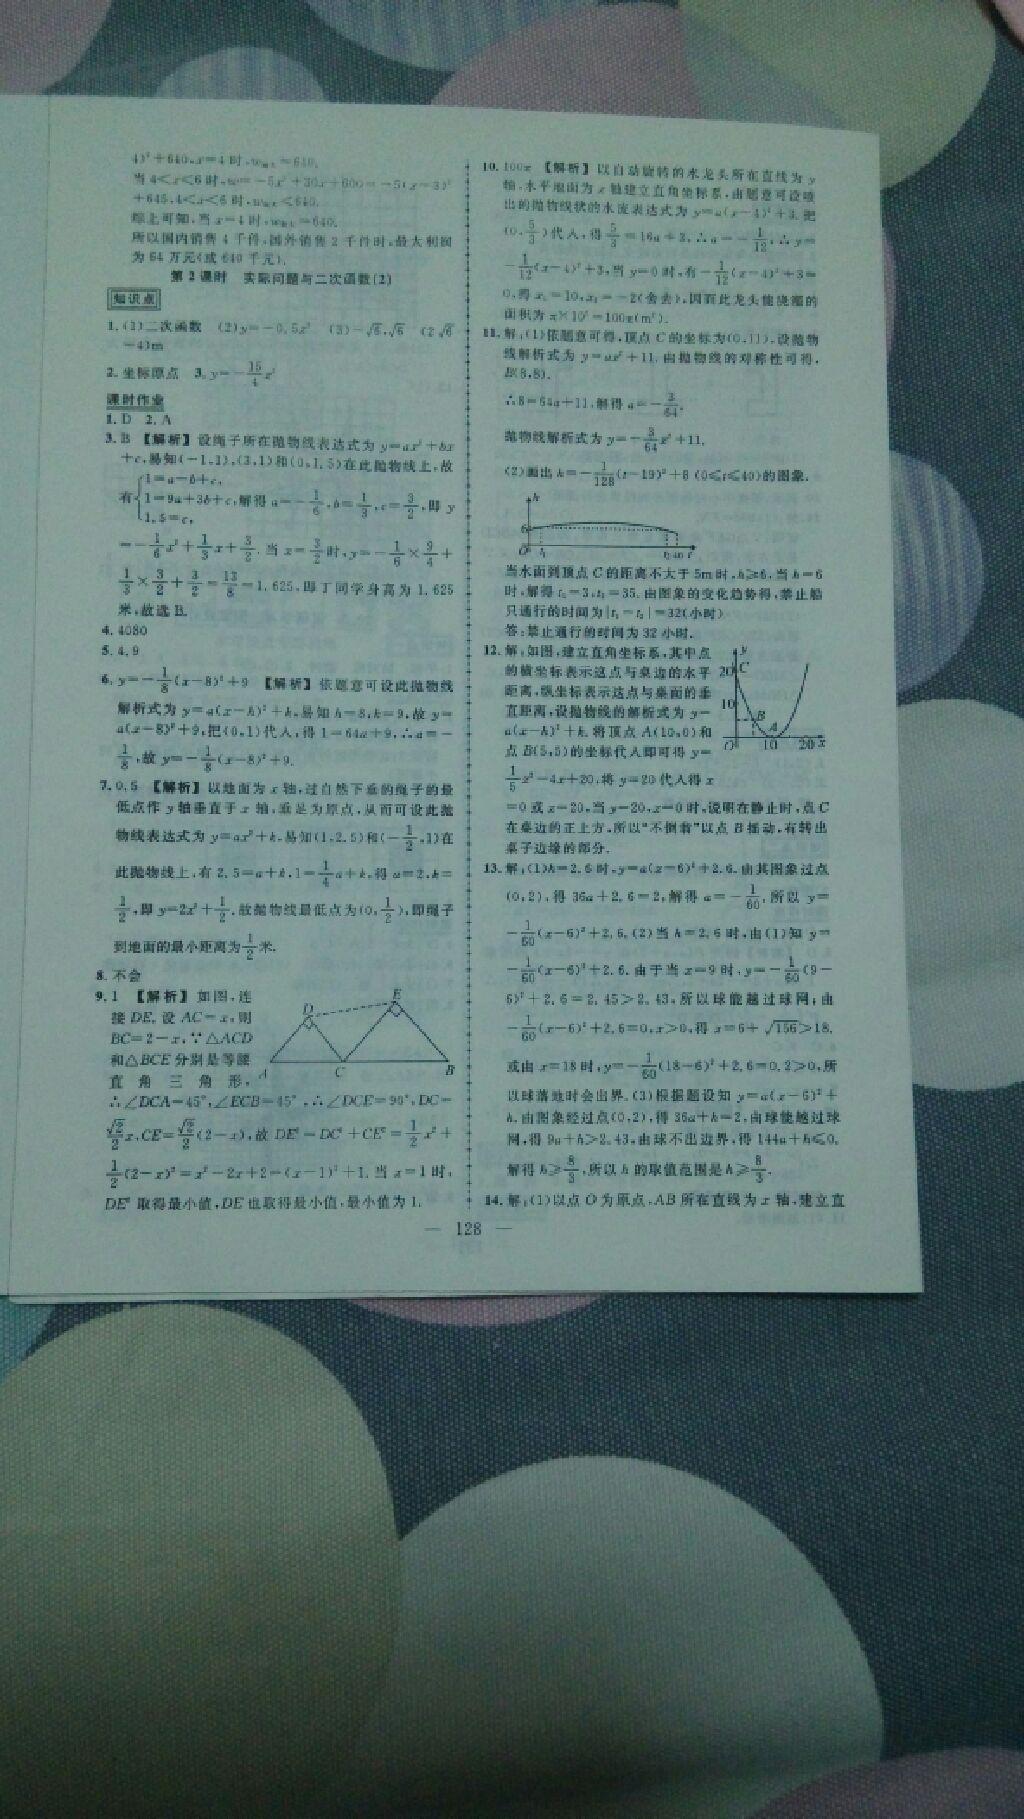 4)²+640,x=4时,w最大=640.
当4<x<6时,w=-5x²+30x+600=-5(x-3)²
+645,4<x<6时,w最大<640.
综上可知,当x=4时,w最大=640.
所以国内销售4千件,国外销售2千件时,最大利润
为64万元(或640千元).
第2课时 实际问题与二次函数(2)
知识点
1.(1)二次函数 (2)y=-0.5x² (3)-√6,√6 (2√6
-4)m
2.坐标原点 3.y=-15/4x²
课时作业
1.D 2.A
3.B 【解析】设绳子所在抛物线表达式为y=ax²+bx
+c,易知(-1,1),(3,1)和(0,1.5)在此抛物线上,故
有{1=a-b+c, 1=9a+3b+c, 1.5=c, 解得a=-1/6,b=1/3,c=3/2,即y
=-1/6x²+1/3x+3/2.当x=3/2时,y=-1/6×9/4+
1/3×3/2+3/2=13/8=1.625,即丁同学身高为1.625
米,故选B.
4.4080
5.4.9
6.y=-1/8(x-8)²+9 【解析】依题意可设此抛物线
解析式为y=a(x-h)²+k,易知h=8,k=9,故y=
a(x-8)²+9,把(0,1)代入,得1=64a+9,∴a=-
1/8,故y=-1/8(x-8)²+9.
7.0.5 【解析】以地面为x轴,过自然下垂的绳子的最
低点作y轴垂直于x轴,垂足为原点,从而可设此抛
物线表达式为y=ax²+k,易知(1,2.5)和(-1/2,1)在
此抛物线上,有2.5=a+k,1=1/4a+k,得a=2,k=
1/2,即y=2x²+1/2.故抛物线最低点为(0,1/2),即绳子
到地面的最小距离为1/2米.
8.不会
9.1 【解析】如图,连
接DE,设AC=x,则
BC=2-x,∵△ACD
和△BCE分别是等腰
直角三角形,
D E A C B
∴∠DCA=45°,∠ECB=45°,∴∠DCE=90°,DC=
√2/2x,CE=√2/2(2-x),故DE²=DC²+CE²=1/2x²+
1/2(2-x)²=x²-2x+2=(x-1)²+1.当x=1时,
DE²取得最小值,DE也取得最小值,最小值为1.
10.100π 【解析】以自动旋转的水龙头所在直线为y
轴,水平地面为x轴建立直角坐标系,由题意可设喷
出的抛物线状的水流表达式为y=a(x-4)²+3.把
(0,5/3)代入,得5/3=16a+3,∴a=-1/12,∴y=
-1/12(x-4)²+3,当y=0时,有-1/12(x-4)²+3=
0,得x₁=10,x₂=-2(舍去),因而此龙头能浇灌的
面积为π×10²=100π(m²).
11.解:(1)依题意可得,顶点C的坐标为(0,11),设抛物
线解析式为y=ax²+11.由抛物线的对称性可得,
B(8,8).
∴8=64a+11,解得a=-3/64,
抛物线解析式为y=-3/64x²+11.
(2)画出h=-1/128(t-19)²+8(0≤t≤40)的图象.
h 6 O t₁ t₂ 40 t
当水面到顶点C的距离不大于5m时,h≥6,当h=6
时,解得t₁=3,t₂=35.由图象的变化趋势得,禁止船
只通行的时间为|t₁-t₂|=32(小时).
答:禁止通行的时间为32小时.
12.解:如图,建立直角坐标系,其中点
的横坐标表示这点与桌边的水平
距离,纵坐标表示这点与桌面的垂
直距离,设抛物线的解析式为y=
a(x-h)²+k.将顶点A(10,0)和
点B(5,5)的坐标代入即可得y=
1/5x²-4x+20,将y=20代入得x
y 20 C 10 B A O 10 20 x
=0或x=20,当y=20,x=0时,说明在静止时,点C
在桌边的正上方,所以“不倒翁”以点B摇动,有转出
桌子边缘的部分.
13.解:(1)h=2.6时,y=a(x-6)²+2.6.由其图象过点
(0,2),得36a+2.6=2,解得a=-1/60,所以y=
-1/60(x-6)²+2.6.(2)当h=2.6时,由(1)知y=
-1/60(x-6)²+2.6.由于当x=9时,y=-1/60(9-
6)²+2.6=2.45>2.43,所以球能越过球网;由
-1/60(x-6)²+2.6=0,x>0,得x=6+√156>18,
或由x=18时,y=-1/60(18-6)²+2.6=0.2>0,所
以球落地时会出界.(3)根据题设知y=a(x-6)²+
h.由图象经过点(0,2),得36a+h=2,由球能越过球
网,得9a+h>2.43,由球不出边界,得144a+h≤0.
解得h≥8/3,所以h的取值范围是h≥8/3.
14.解:(1)以点O为原点,AB所在直线为x轴,建立直
— 128 —